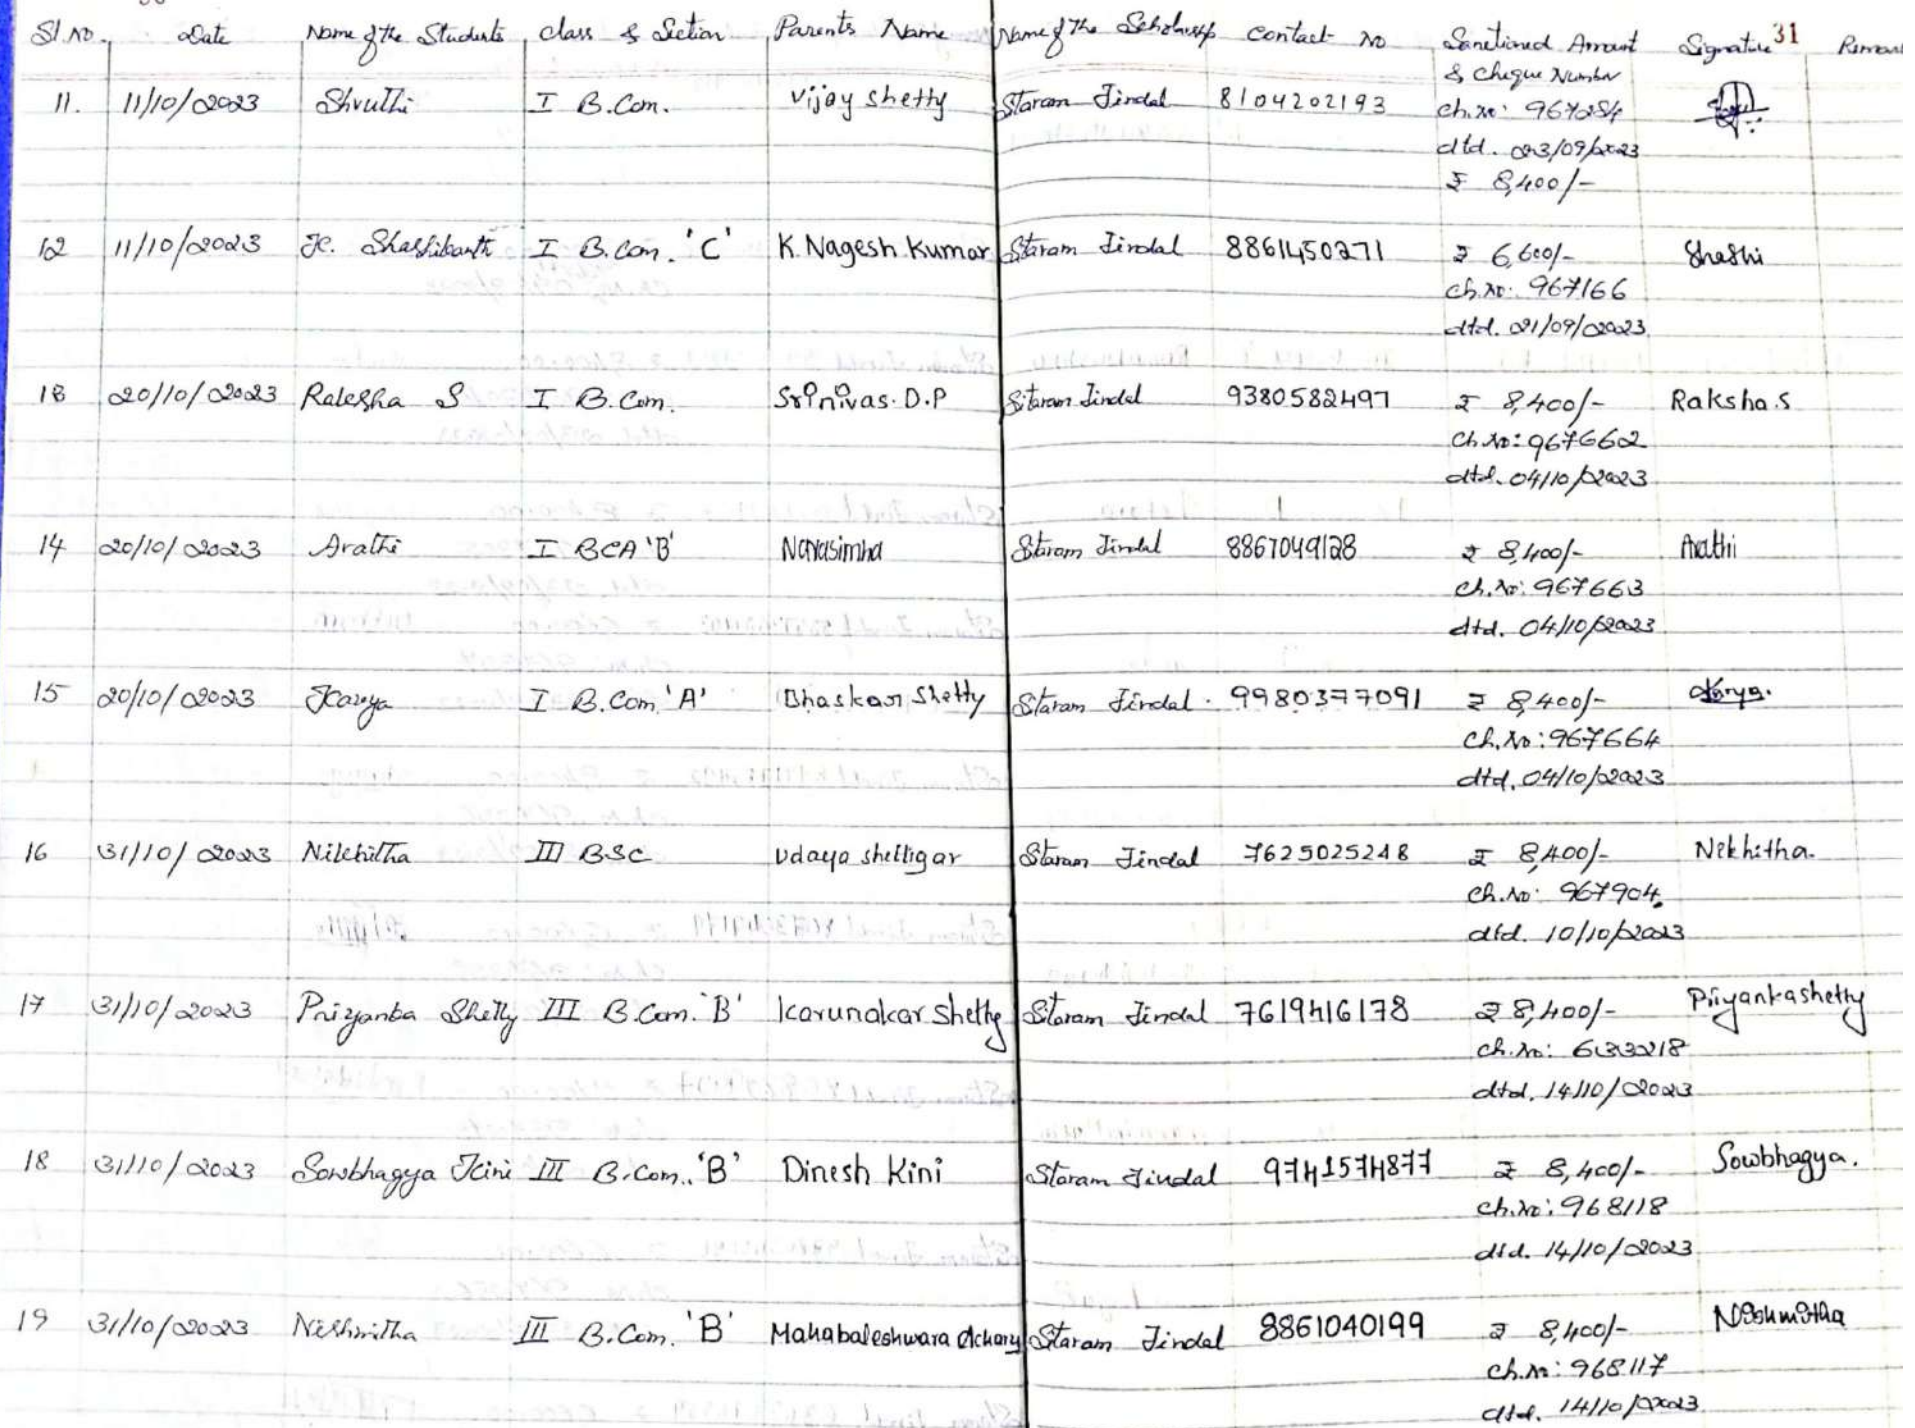 31
Sl. No. Date Name of the Students class & Section Parents Name Name of the Scholarship Contact No Sanctioned Amount Signature
& Cheque Number
11. 11/10/2023 Shruthi I B.Com. Vijay Shetty Sitaram Jindal 8104202193 Ch.No: 967284
dtd. 23/09/2023
₹ 8,400/-
12 11/10/2023 K. Shashikanth I B.Com. 'C' K. Nagesh Kumar Sitaram Jindal 8861450271 ₹ 6,600/- Shashi
Ch.No: 967166
dtd. 21/09/2023
13 20/10/2023 Raksha S I B.Com. Srinivas. D.P Sitaram Jindal 9380582497 ₹ 8,400/- Raksha.S
Ch.No: 967662
dtd. 04/10/2023
14 20/10/2023 Arathi I BCA 'B' Narasimha Sitaram Jindal 8867049128 ₹ 8,400/- Arathi
Ch.No: 967663
dtd. 04/10/2023
15 20/10/2023 Kavya I B.Com 'A' Bhaskar Shetty Sitaram Jindal. 9980377091 ₹ 8,400/- Kavya.
Ch.No: 967664
dtd. 04/10/2023
16 31/10/2023 Nikhitha III BSC Udaya shettigar Sitaram Jindal 7625025248 ₹ 8,400/- Nikhitha.
Ch.No: 967904
dtd. 10/10/2023
17 31/10/2023 Priyanka Shetty III B.Com. 'B' Karunakar Shetty Sitaram Jindal 7619416178 ₹ 8,400/- Priyankashetty
Ch.No: 633218
dtd. 14/10/2023
18 31/10/2023 Sowbhagya Kini III B.Com. 'B' Dinesh Kini Sitaram Jindal 9741574877 ₹ 8,400/- Sowbhagya.
Ch.No: 968118
dtd. 14/10/2023
19 31/10/2023 Nishmitha III B.Com. 'B' Mahabaleshwara Achary Sitaram Jindal 8861040199 ₹ 8,400/- Nishmitha
Ch.No: 968117
dtd. 14/10/2023